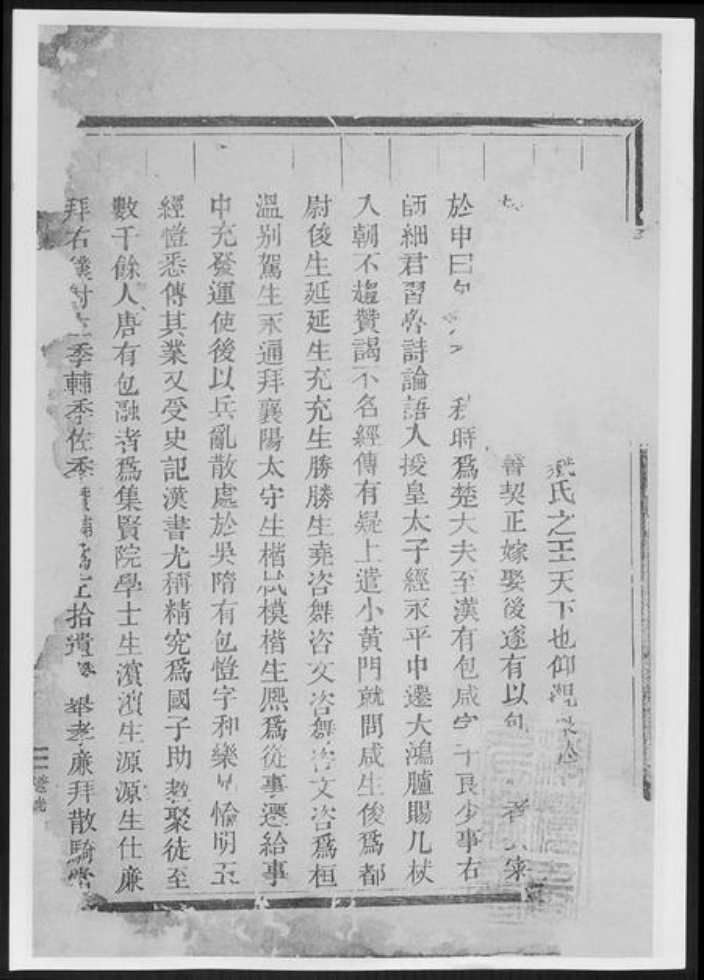 氏之王天下也仰觀
書契正嫁娶後遂有以包
於申曰包 秋時爲楚大夫至漢有包咸字子良少事右
師細君習魯詩論語入授皇太子經永平中遷大鴻臚賜几杖
入朝不趨贊謁不名經傳有疑上遣小黃門就問咸生俊爲都
尉俊生延延生充充生勝勝生堯咨舜咨文咨舜咨文咨爲桓
溫別駕生永通拜襄陽太守生楷栻模楷生熈爲從事遷給事
中充發運使後以兵亂散處於吳隋有包愷字和樂兄愉明五
經愷悉傳其業又受史記漢書尤稱精究爲國子助敎聚徒至
數千餘人唐有包融者爲集賢院學士生濵濵生源源生仕廉
拜右僕射 季輔季佐季 左拾遺 舉孝廉拜散騎